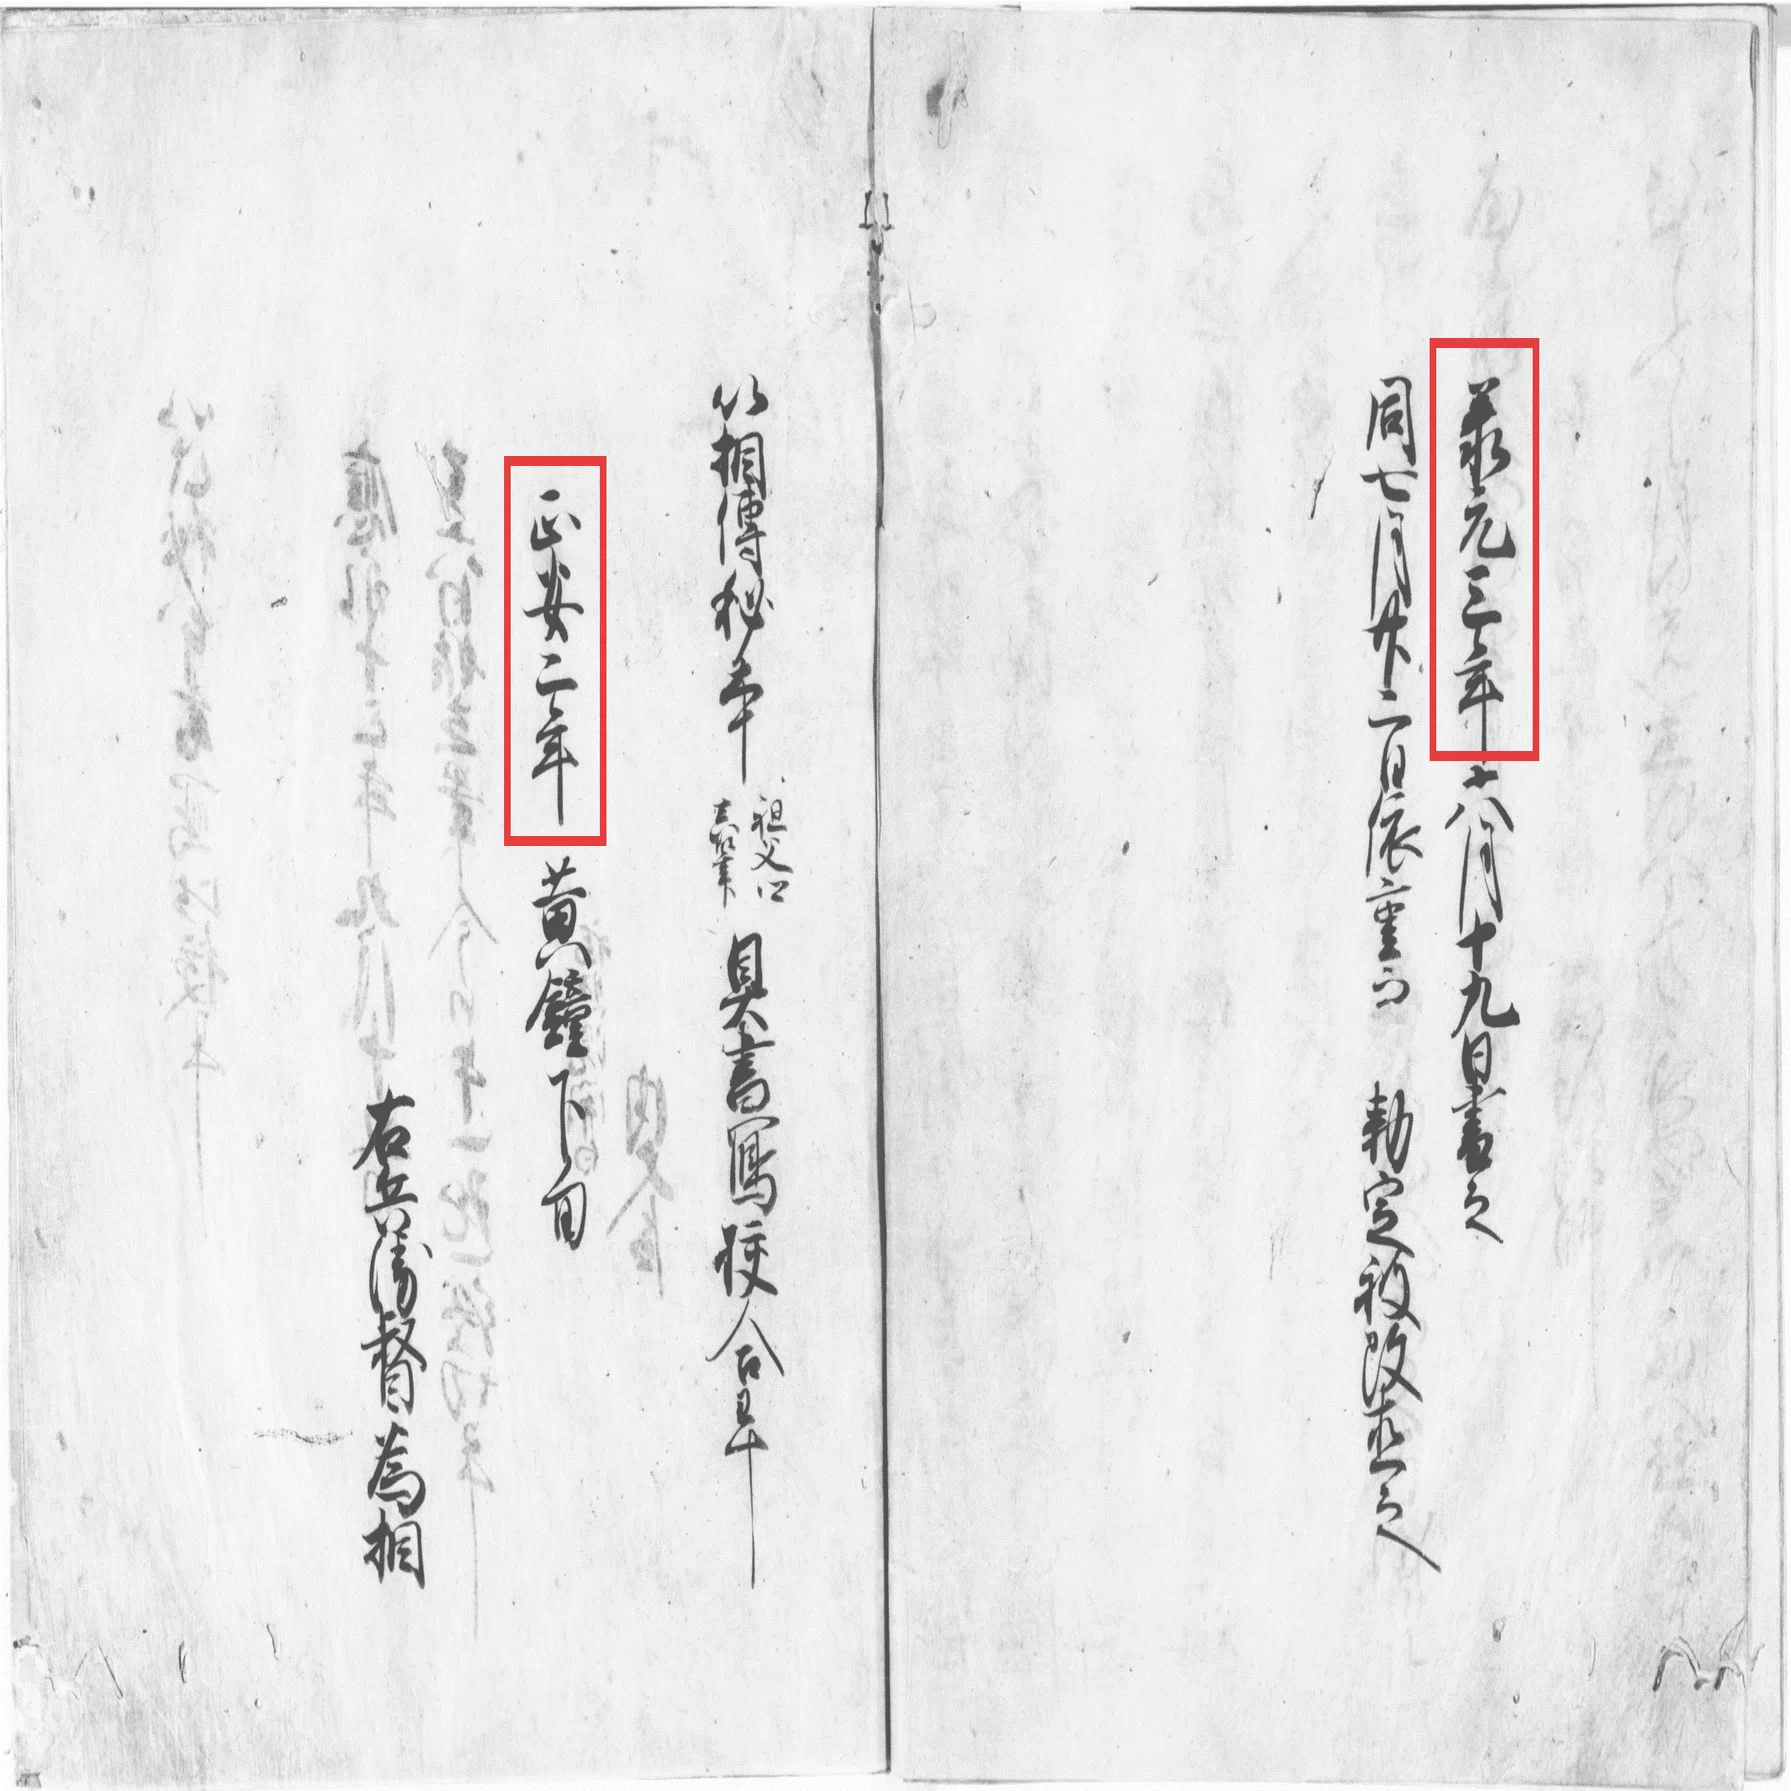 承元三年六月十九日書之
同七月廿二日依重而 勅定被改直之
以相傳秘本 祖父卿真筆 具書寫校合畢
正安二年 黄鐘下旬
右兵衛督為相